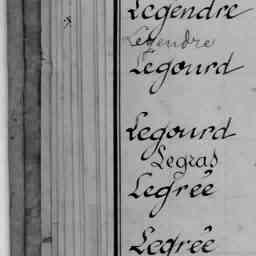 Legendre
Legendre
Legourd
Legourd
Legras
Legrêe
Legrêe